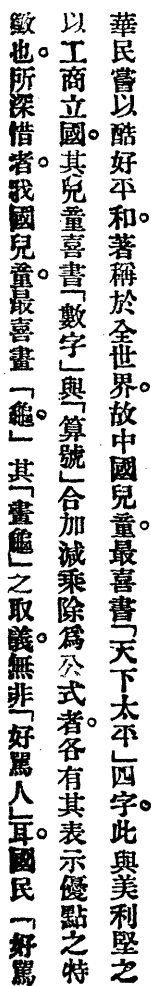 華民嘗以酷好平和著稱於全世界。故中國兒童最喜書「天下太平」四字。此與美利堅之
以工商立國。其兒童喜書「數字」與「算號」合加減乘除爲公式者。各有其表示優點之特
徵也。所深惜者。我國兒童最喜畫「龜」。其「畫龜」之取義。無非「好罵人」耳。國民「好罵